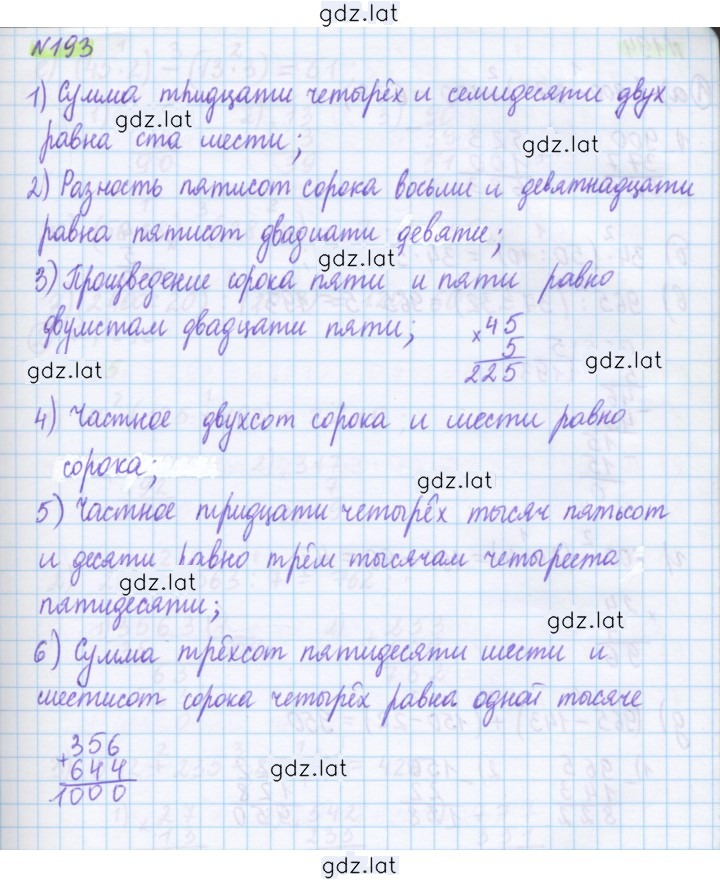 gdz.lat
№193
1) Сумма тридцати четырёх и семидесяти двух
gdz.lat
равна ста шести;
gdz.lat
2) Разность пятисот сорока восьми и девятнадцати
равна пятисот двадцати девяти;
gdz.lat
3) Произведение сорока пяти и пяти равно
двумстам двадцати пяти;
×45
5
225
gdz.lat
gdz.lat
4) Частное двухсот сорока и шести равно
сорока;
gdz.lat
5) Частное тридцати четырёх тысяч пятьсот
и десяти равно трём тысячам четыреста
gdz.lat
пятидесяти;
gdz.lat
6) Сумма трёхсот пятидесяти шести и
шестисот сорока четырёх равна одной тысяче
+356
644
1000
gdz.lat
gdz.lat